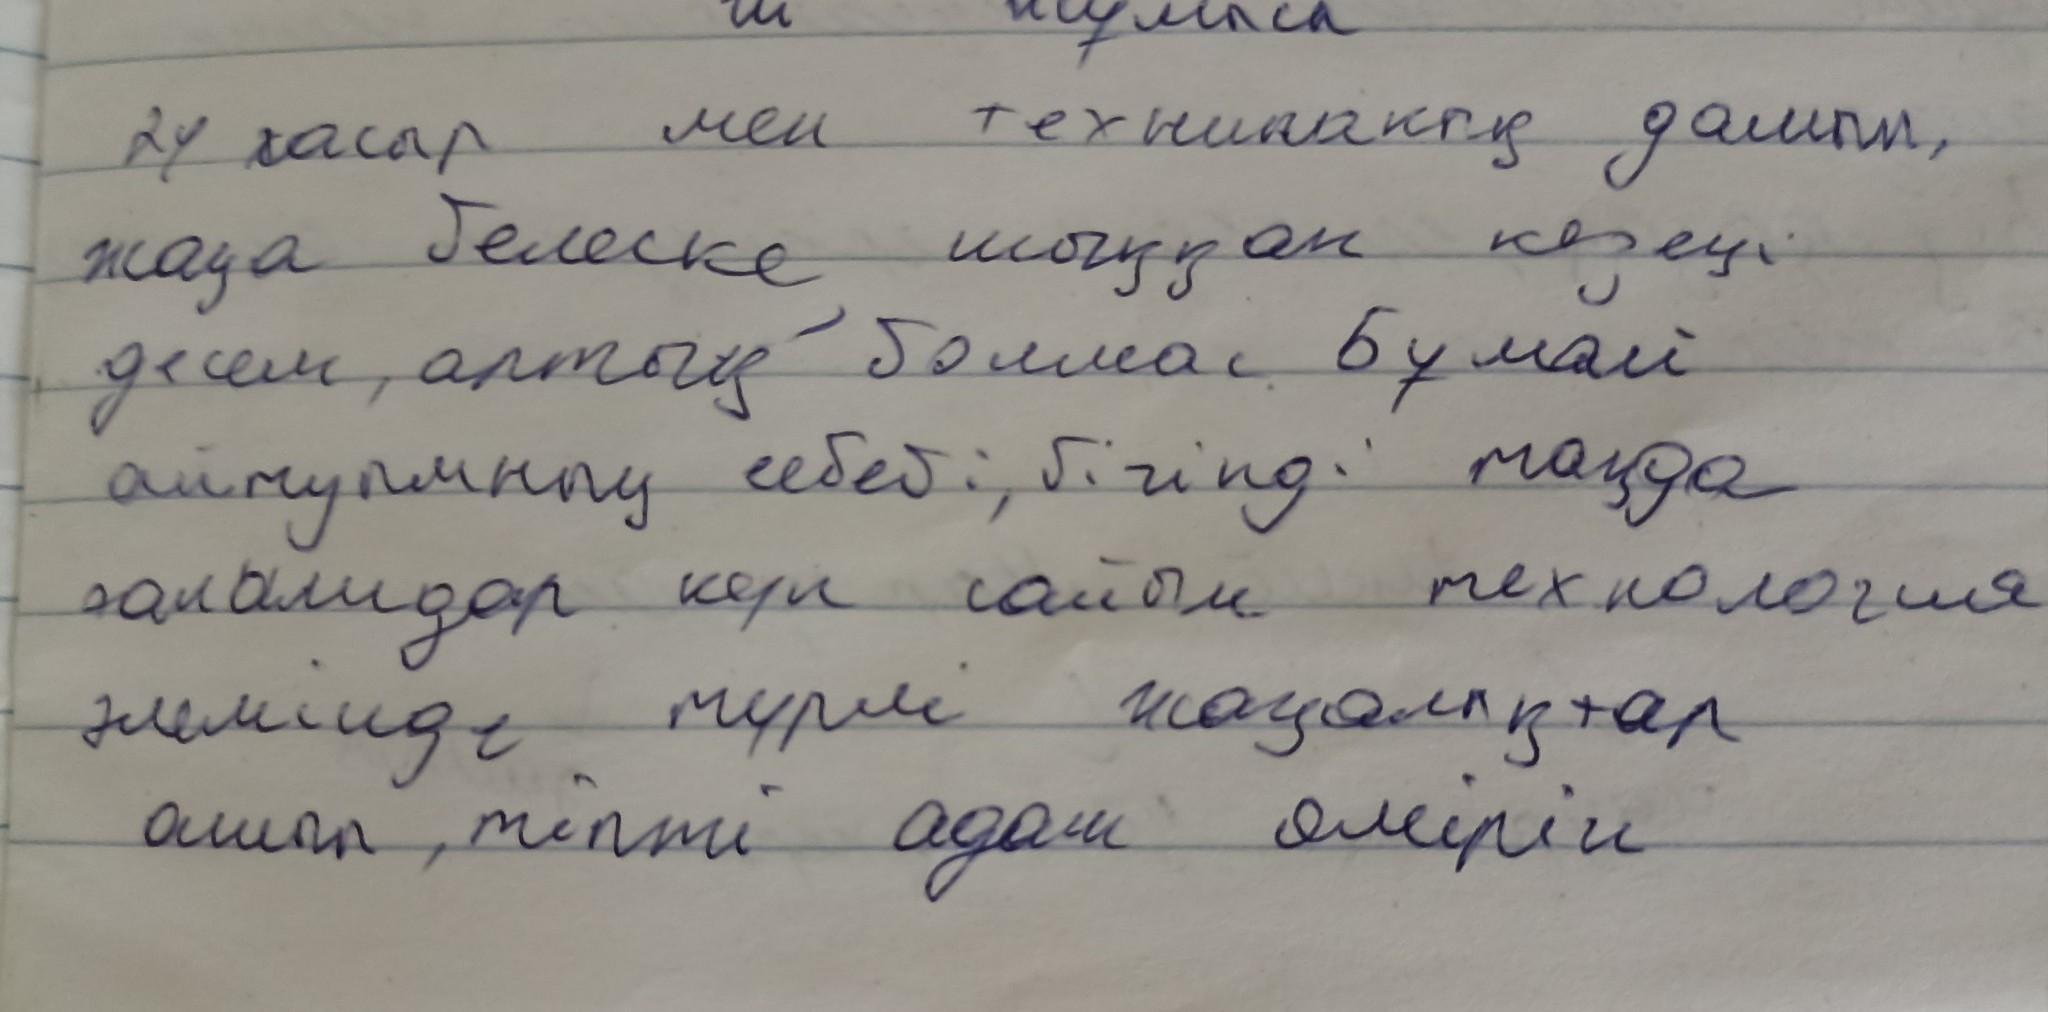 жұмысы
21 ғасыр мен техниканың дамып,
жаңа белеске шыққан кезеңі
десем, артық болмас Бұлай
айтуымның себебі, бігінгі таңда
ғалымдар күн сайын технология
әлемінде түрлі жаңалықтар
ашып, тіпті адам өмірін